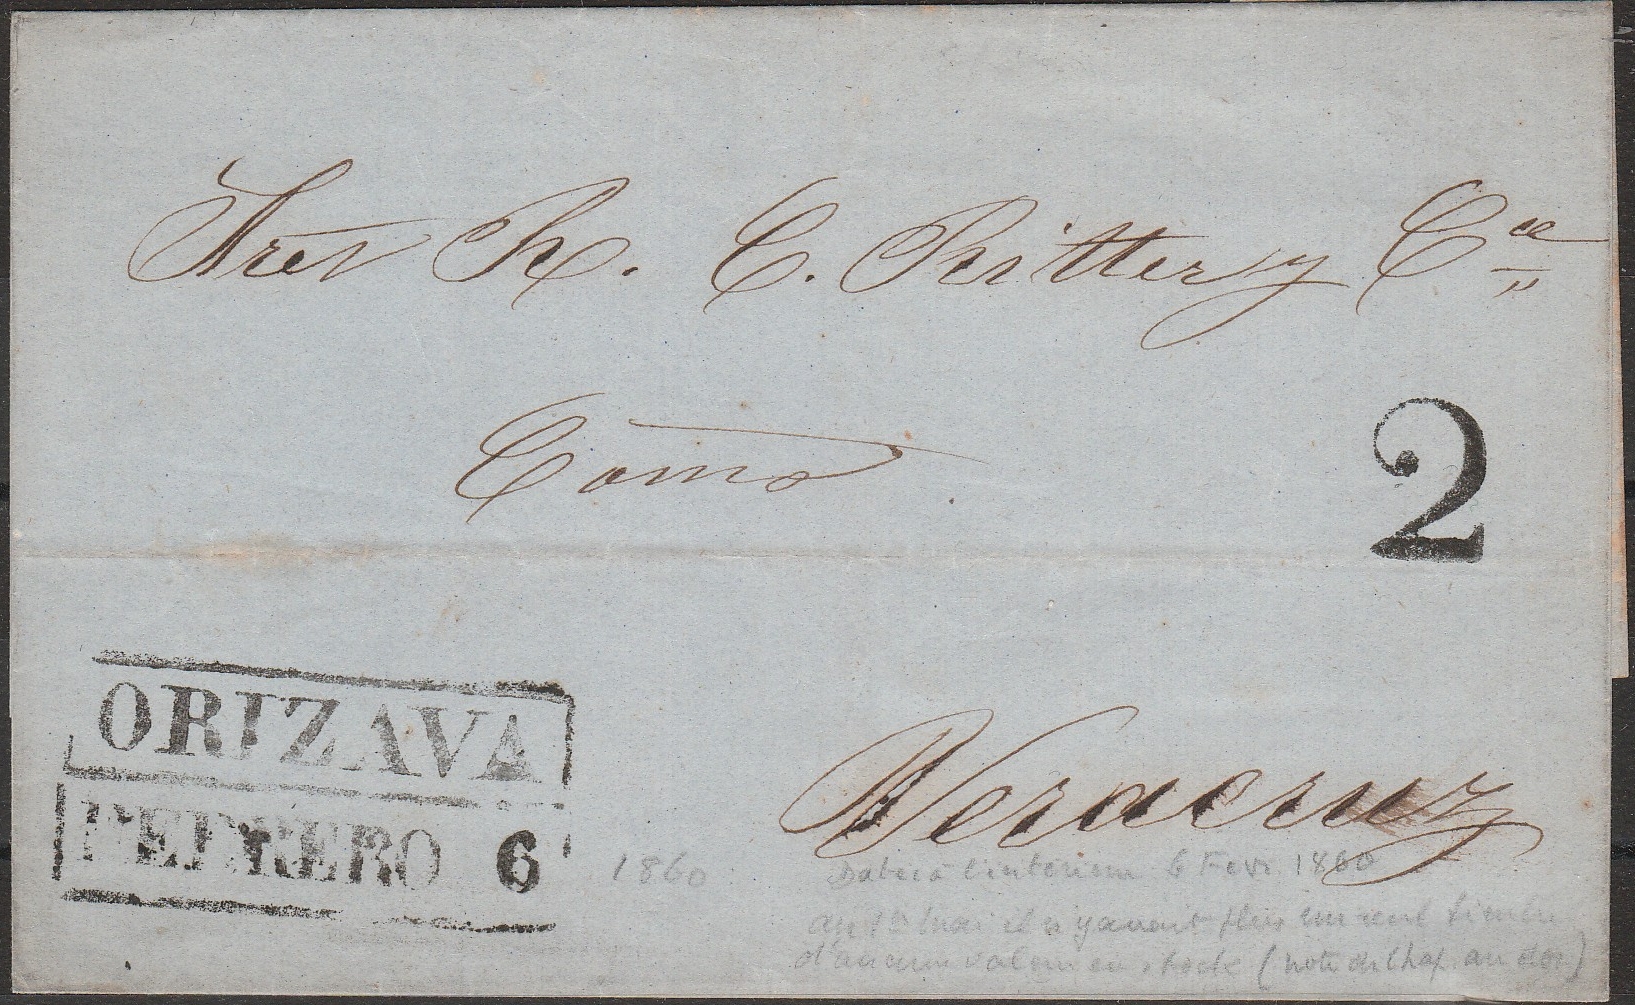 Sres R. C. Ritter y Ca
Como
2
ORIZAVA
FEBRERO 6
Veracruz
1860
Daté à l'intérieur 6 Fevr. 1860
au 1er mai il n'y avait plus un seul timbre
d'aucune valeur en stock (note de Chap. au dos)